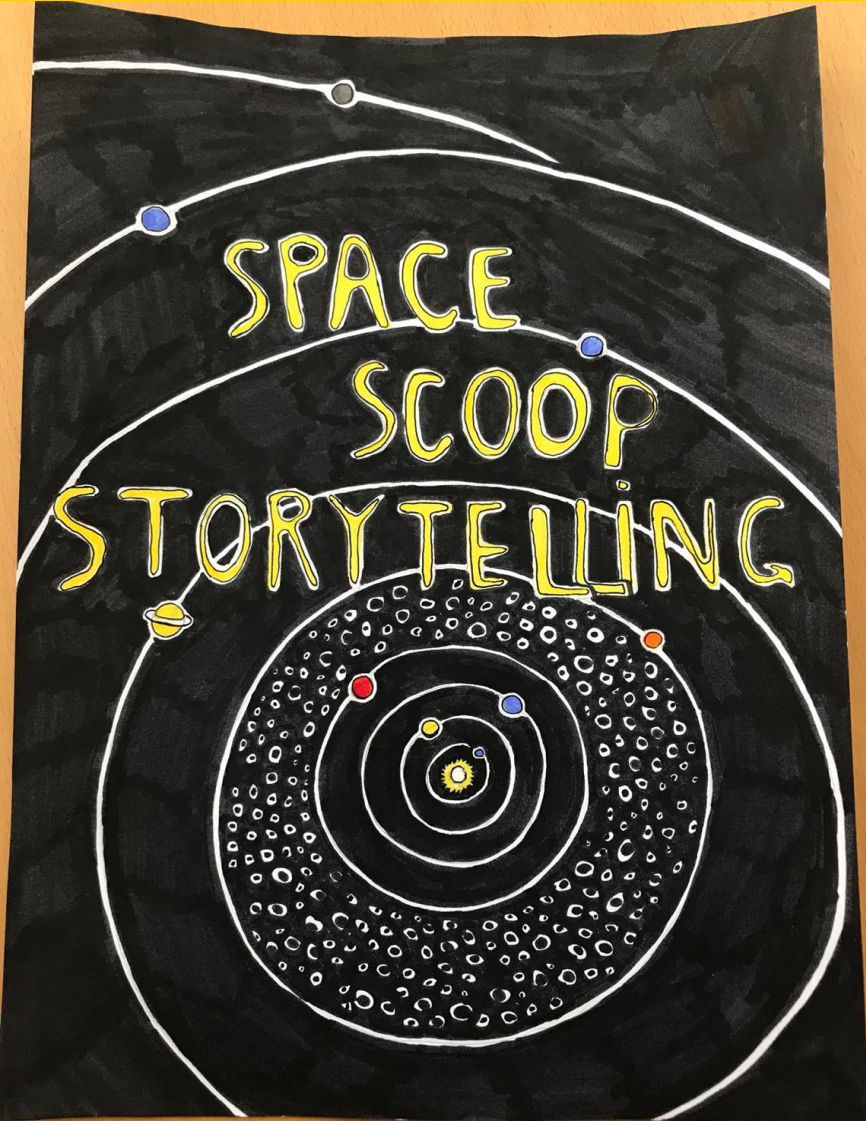 SPACE
SCOOP
STORYTELLiNG